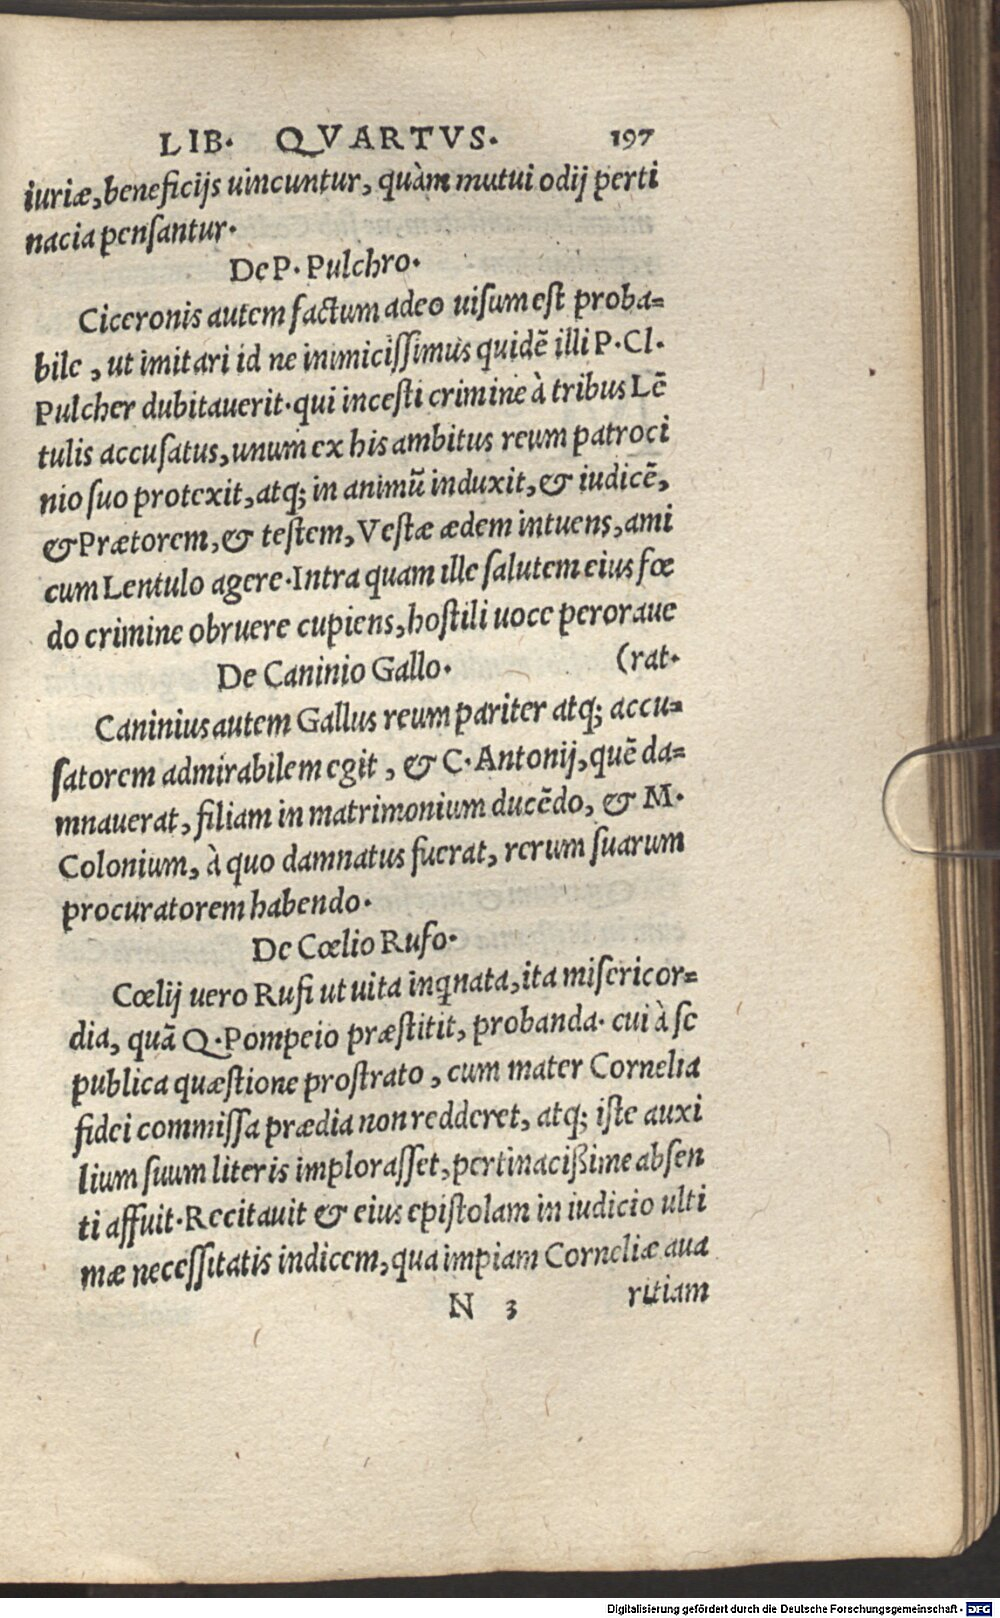 LIB. QVARTVS. 197
iuriæ, beneficijs uincuntur, quàm mutui odij perti
nacia pensantur.
De P. Pulchro.
Ciceronis autem factum adeo uisum est proba=
bile, ut imitari id ne inimicissimus quidē illi P. Cl.
Pulcher dubitauerit. qui incesti crimine à tribus Lē
tulis accusatus, unum ex his ambitus reum patroci
nio suo protexit, atq; in animū induxit, & iudicē,
& Prætorem, & testem, Vestæ ædem intuens, ami
cum Lentulo agere. Intra quam ille salutem eius fœ
do crimine obruere cupiens, hostili uoce peroraue
De Caninio Gallo. (rat.
Caninius autem Gallus reum pariter atq; accu=
satorem admirabilem egit, & C. Antonij, quē da=
mnauerat, filiam in matrimonium ducēdo, & M.
Colonium, à quo damnatus fuerat, rerum suarum
procuratorem habendo.
De Cœlio Rufo.
Cœlij uero Rufi ut uita inqnata, ita misericor=
dia, quā Q. Pompeio præstitit, probanda. cui à se
publica quæstione prostrato, cum mater Cornelia
fidei commissa prædia non redderet, atq; iste auxi
lium suum literis implorasset, pertinacißime absen
ti affuit. Recitauit & eius epistolam in iudicio ulti
mæ necessitatis indicem, qua impiam Corneliæ aua
N 3 ritiam
Digitalisierung gefördert durch die Deutsche Forschungsgemeinschaft - DFG